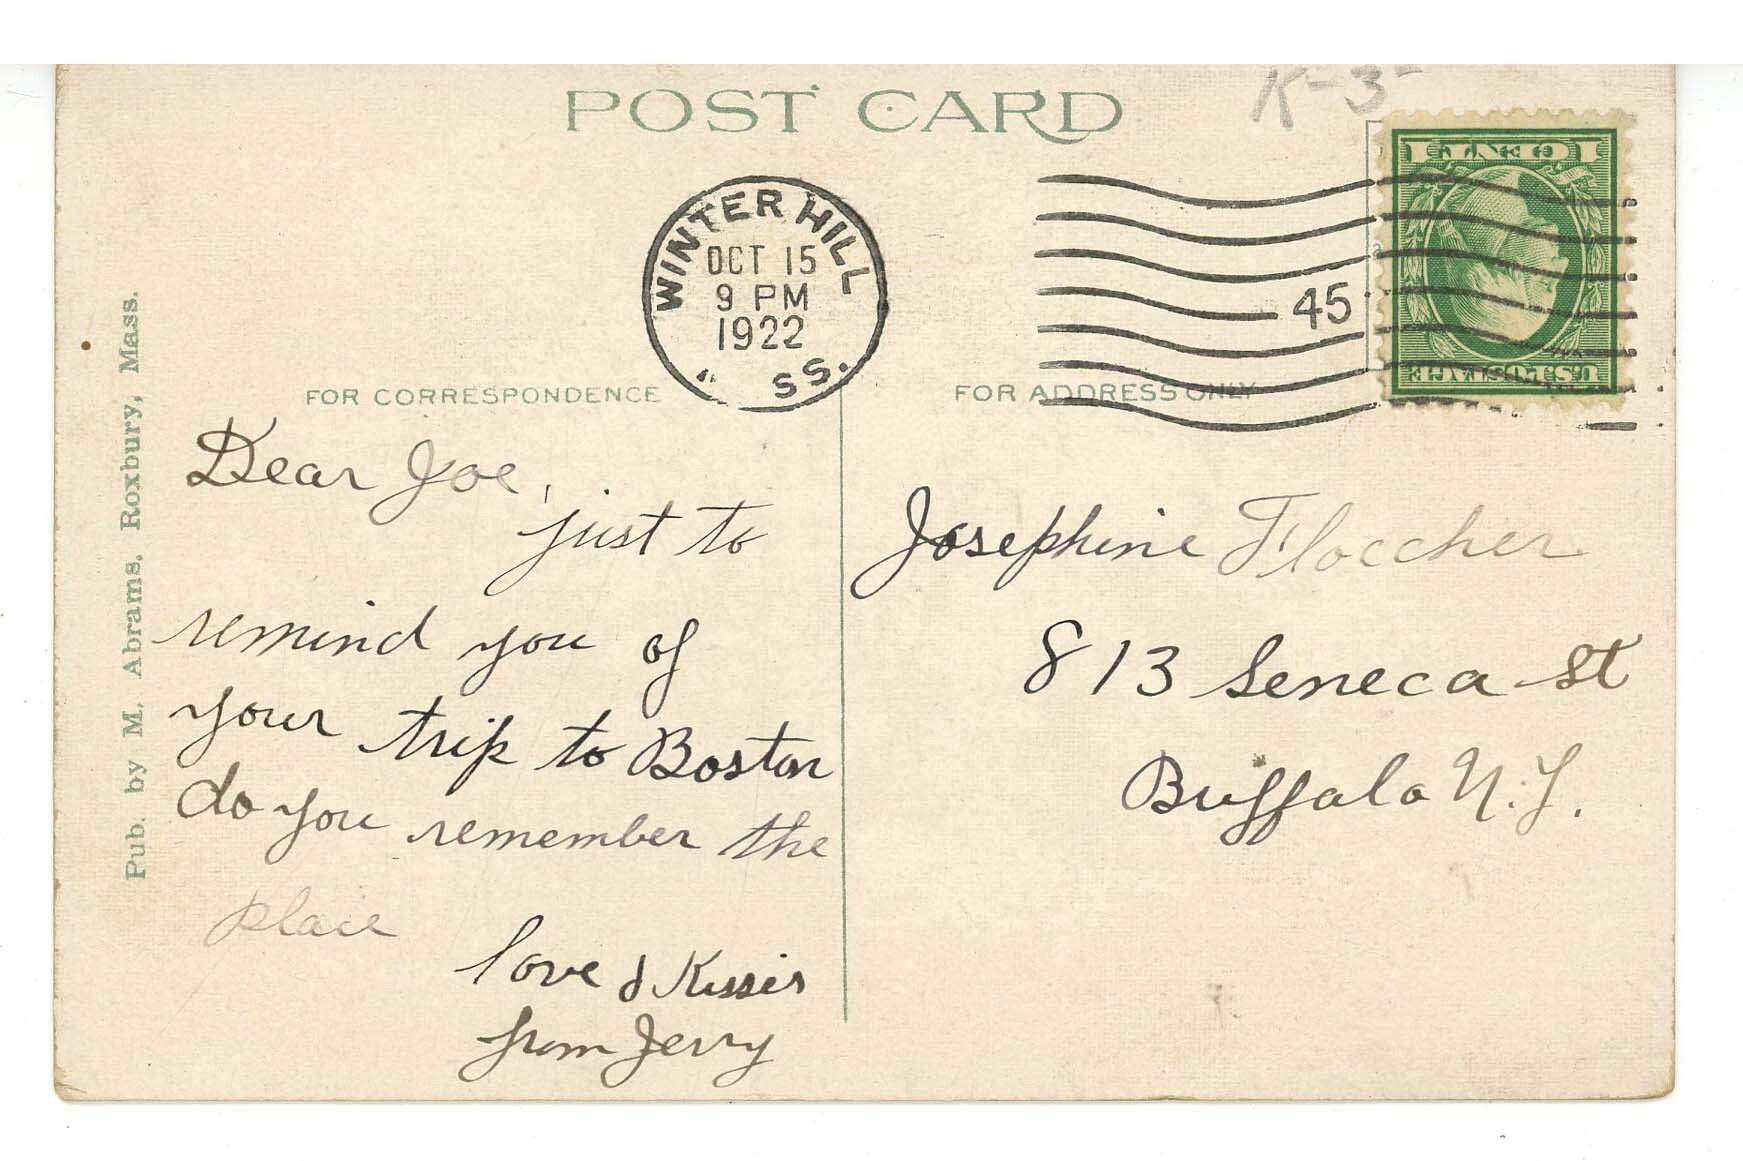 POST CARD
K-3-
WINTER HILL
OCT 15
9 PM
1922
SS.
45
1 CENT 1
U.S. POSTAGE
FOR CORRESPONDENCE
FOR ADDRESS ONLY
Pub. by M. Abrams, Roxbury, Mass.
Dear Joe,
just to
remind you of
your trip to Boston
do you remember the
place
love & Kisses
from Jerry
Josephine Floccher
813 Seneca St
Buffalo N.Y.